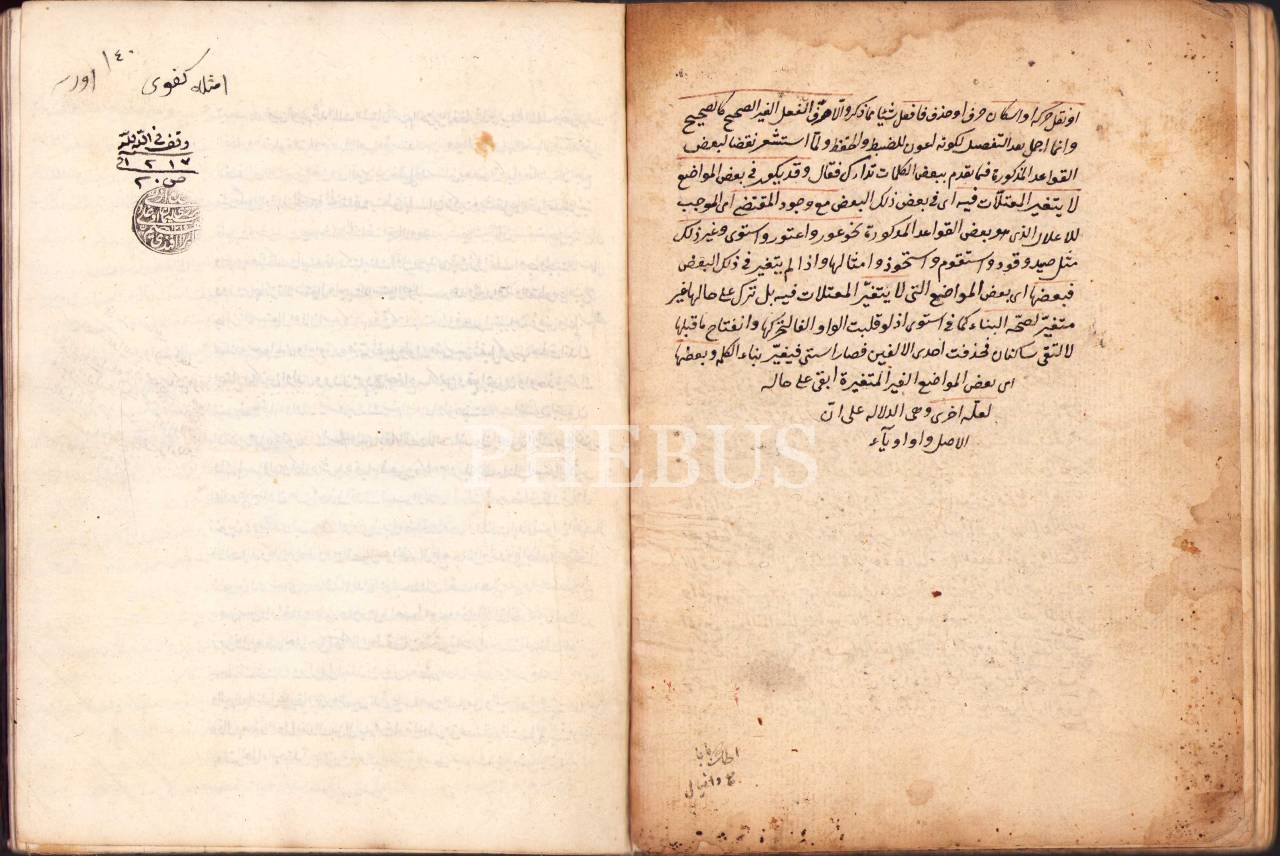 او نقل حركة او اسكان حرف او حذف فافعل شيئا مما ذكر والا صرف الفعل الغير الصحيح كالصحيح
وانما اجمل بعد التفصيل لكونه اعون للضبط والحفظ ولما استشعر نقضا لبعض
القواعد المذكورة فيما تقدم ببعض الكلمات تداركه فقال وقد يكون في بعض المواضع
لا يتغير المعتلات فيه اى فى بعض ذلك البعض مع وجود المقتضى اى الموجب
للاعلال الذى هو بعض القواعد المذكورة نحو عور واعتور واستوى وغير ذلك
مثل صيد وقود واستقوم واستحوذ وامثالها واذا لم يتغير فى ذلك البعض
فبعضها اى بعض المواضع التى لا يتغير المعتلات فيه بل ترك على حالها غير
متغير لصحة البناء كما فى استوى اذ لو قلبت الواو الفا لتحركها وانفتاح ما قبلها
لالتقى ساكنان فحذفت احدى الالفين فصار استى فيغير بناء الكلمة وبعضها
اى بعض المواضع الغير المتغيرة ابقى على حاله
لعلة اخرى وهى الدلالة على ان
الاصل واو او ياء
امثله كفوى
١٤٠
١٢١٧
PHEBUS